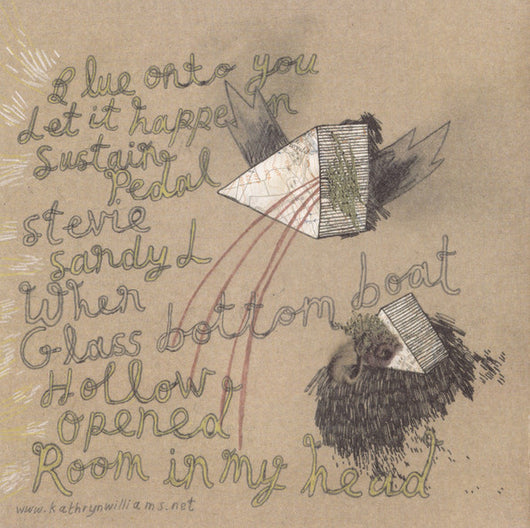 Blue onto you
Let it happen
Sustain
Pedal
stevie
Sandy L
When
Glass bottom boat
Hollow
opened
Room in my head
www.kathrynwilliams.net